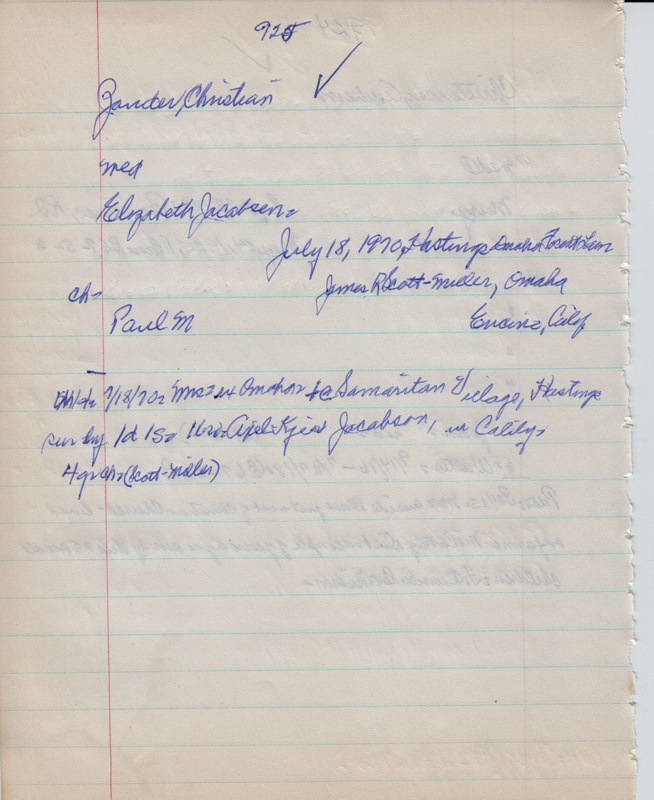 925
Zander, Christian
med
Elizabeth Jacobsen=
July 18, 1970, Hastings Omaha Forest Lawn
James R Scott-Miller, Omaha
ch=
Paul M Encino, Calif
7/18/70= Mrs= ex Omahan to Samaritan Village, Hastings
sur by 1d 1s= 1bro= Axel Jacobson, in Calif=
4 grch= (Scott-Miller)